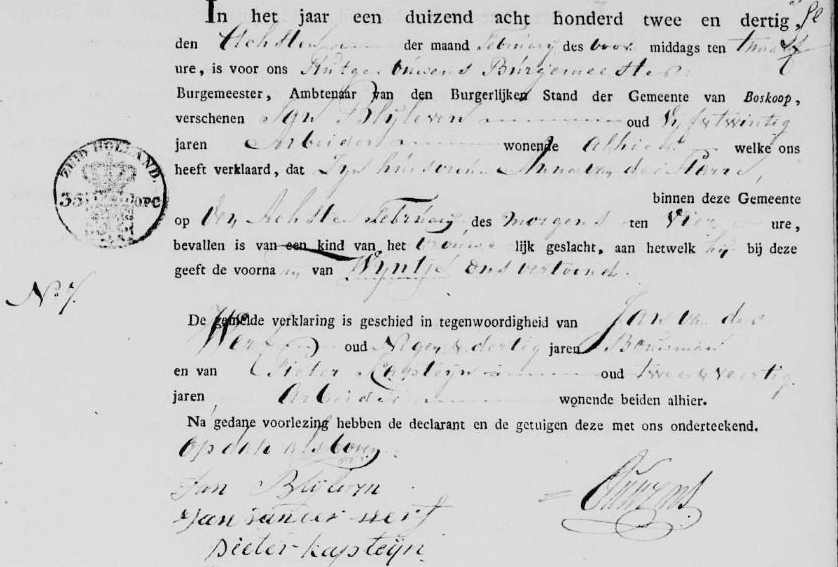 In het jaar een duizend acht honderd twee en dertig,
den Achsten der maand February des voor middags ten twaalf
ure, is voor ons Burgemeester
Burgemeester, Ambtenaar van den Burgerlijken Stand der Gemeente van Boskoop,
verschenen Jan Blyleven oud Vyf & twintig
jaren Arbeider wonende alhier welke ons
heeft verklaard, dat Zyn huisvrouw Anna van der
binnen deze Gemeente
op Den Achsten February des morgens ten Vier ure,
bevallen is van een kind van het vrouwe lijk geslacht, aan hetwelk hij bij deze
geeft de voorna am van Wyntje ons vertoond.
No. 7.
De gemelde verklaring is geschied in tegenwoordigheid van Jan van der
Werf oud Negen & dertig jaren Bouwman
en van Pieter Kapsteyn oud twee & veertig
jaren Arbeider wonende beiden alhier.
Na gedane voorlezing hebben de declarant en de getuigen deze met ons onderteekend.
Op dato als boven
Jan Blyleven
Jan van der werf
Pieter kapsteyn
ZUID HOLLAND.
35 OPC